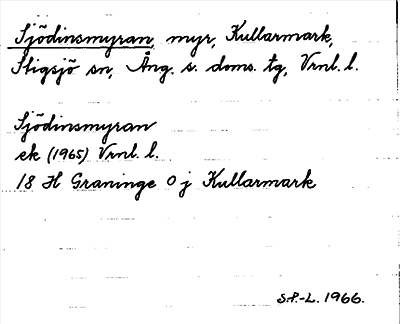 Sjödinsmyran, myr, Kullarmark,
Stigsjö sn, Ång. s. doms. tg, Vrnl. l.
Sjödinsmyran
ek (1965) Vrnl. l.
18 H Graninge 0 j Kullarmark
S.P.-L. 1966.